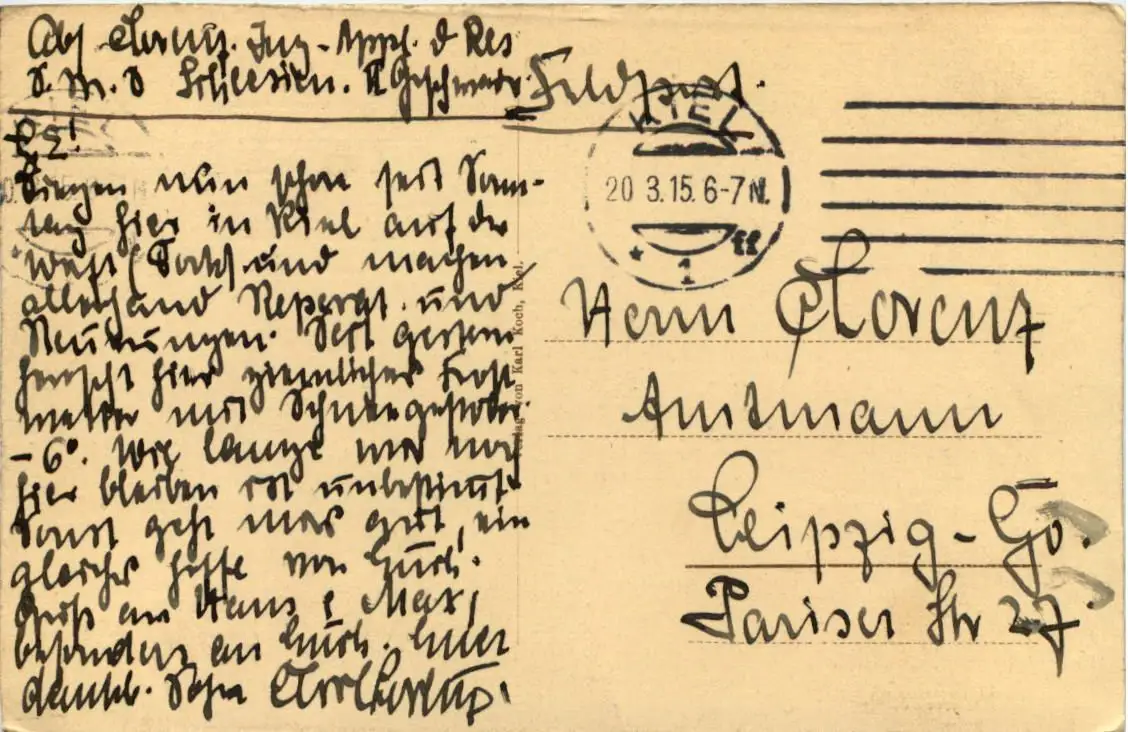 Abs Lorenz. Ing-Appl. d Res
S.M.S Schlesien. II Geschwader. Feldpost.
KIEL
20 3.15. 6-7 N.
* 1 ff
L.E!
Liegen nun schon seit Sonn-
tag hier in Kiel auf der
Werft (Dock) und machen
allerhand Reperat. und
Neuerungen. Seit gestern
herrscht hier ziemliches Frost
wetter mit Schneegestöber.
-6°. Wie lange wir noch
hier bleiben ist unbestimt
Sonst geht mirs gut, ein
gleiches hoffe von Euch.
Gruß an Hans & Max,
besonders an Euch. Euer
dankb. Sohn
Verlag von Karl Koch, Kiel.
Herrn Lorenz
Amtmann
Leipzig-Go.
Pariser Str 27.